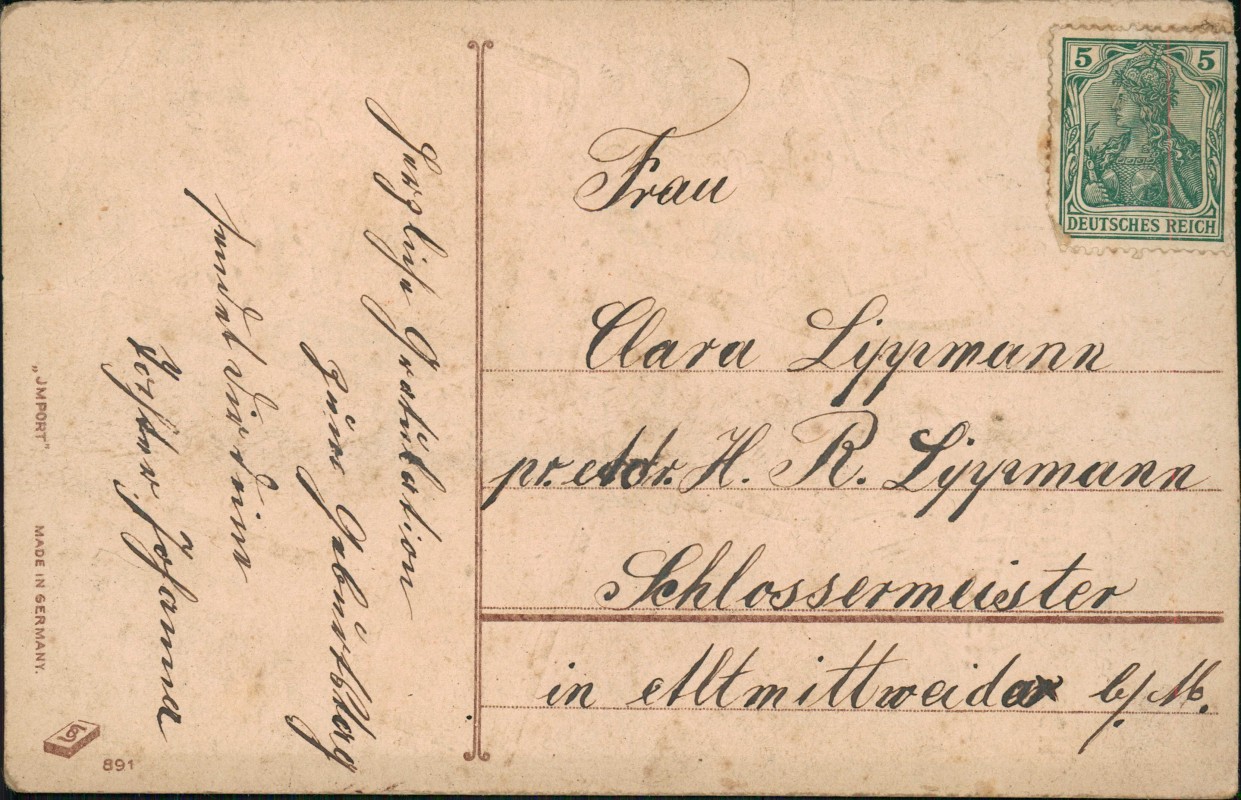 Herzliche Gratulation
zum Geburtstag
sendet Dir Deine
Schwester Johanna
Frau
Clara Lippmann
pr. Adr. H. R. Lippmann
Schlossermeister
in Altmittweida b/M.
5 5
DEUTSCHES REICH
„JMPORT”.
MADE IN GERMANY.
891